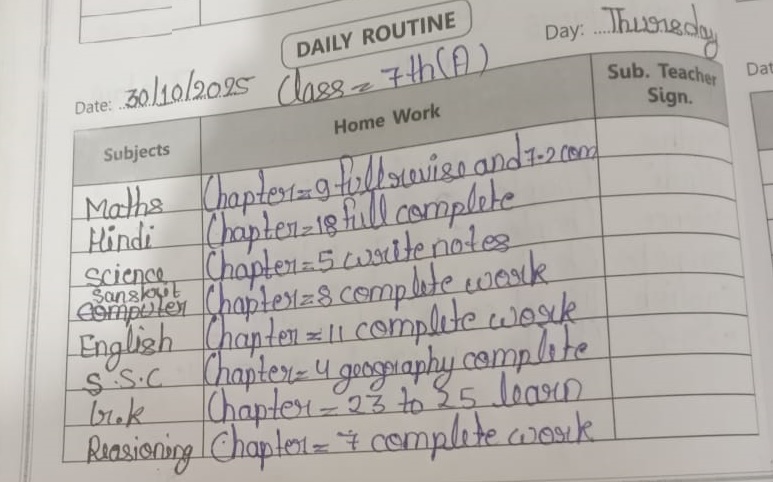 DAILY ROUTINE
Day: ....Thuresday
Date: ..30/10/2025 Class = 7th(A)
Subjects Home Work Sub. Teacher Sign.
Dat
Maths Chapter=9 full revise and 7.2 com
Hindi Chapter=18 full complete
Science Chapter=5 write notes
Sanskrit computer Chapter=8 complete work
English Chapter=11 complete work
S.S.C Chapter=4 geography complete
G.k Chapter=23 to 25 learn
Reasioning Chapter=7 complete work